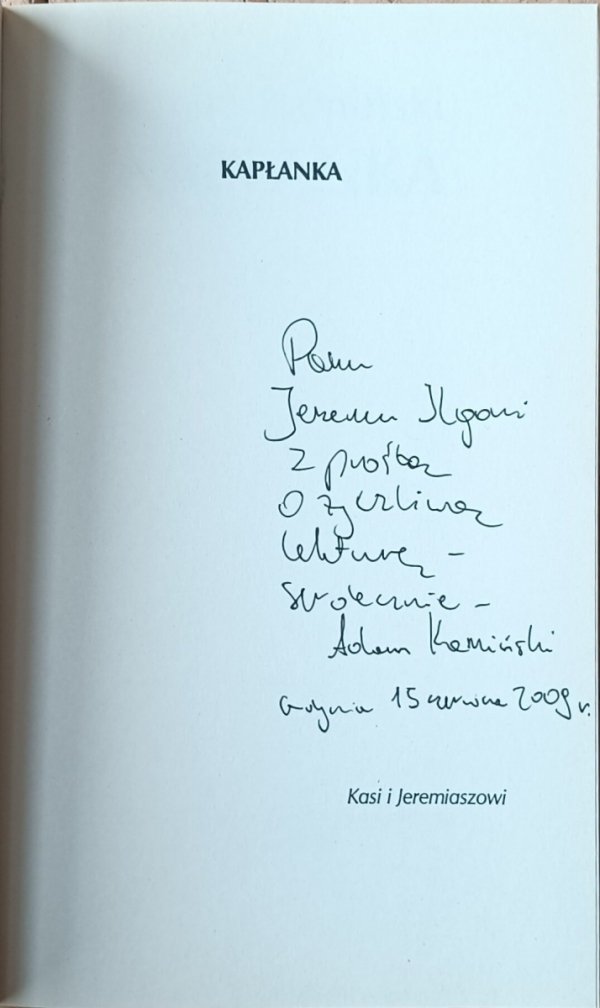 KAPŁANKA
Panu
Jerzemu
z prośbą
o życzliwą
lekturę -
serdecznie -
Adam Kamiński
Gdynia 15 czerwca 2009 r.
Kasi i Jeremiaszowi